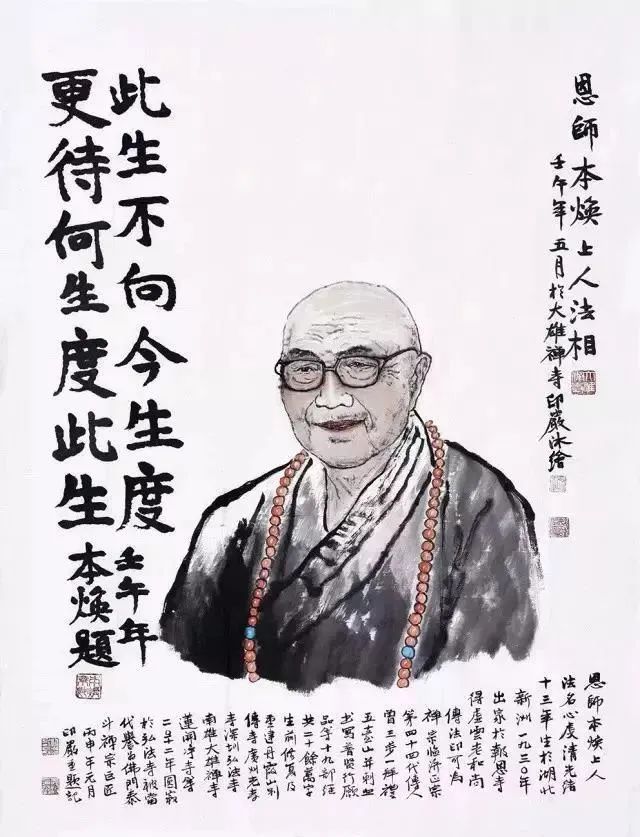 恩師本煥上人法相
壬午年五月於大雄禪寺印嚴沐繪
此生不向今生度 壬午年
更待何生度此生 本煥題
恩師本煥上人
法名心虔清光緒
十三年生於湖北
新洲一九三〇年
出家於報恩寺
得虛雲老和尚
傳法印可為
禪宗臨濟正宗
第四十四代傳人
曾三步一拜禮
五臺山并刺血
書寫普賢行願
品等十九部經
共二十餘萬字
生前修復及
重建丹霞山別
傳寺廣州光孝
寺深圳弘法寺
南雄大雄禪寺
蓮開淨寺等
二〇一二年圓寂
於弘法寺被當
代譽為佛門泰
斗禪宗巨匠
丙申年元月
印嚴重題記